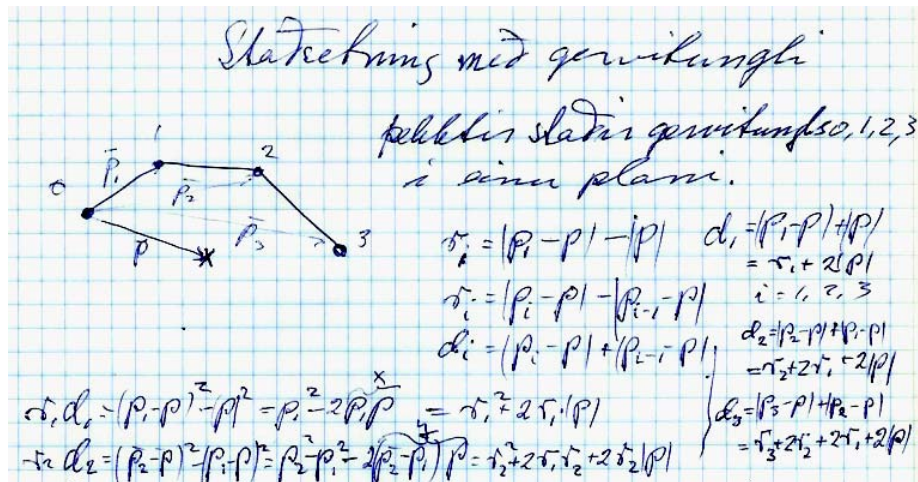 Staðsetning með gervitungli
þekktir staðir gervitungls 0, 1, 2, 3
í einu plani.
0 p̄₁ 1 p̄₂ 2 p̄₃ 3 p
r₁ = |p₁ - p| - |p|
rᵢ = |pᵢ - p| - |pᵢ₋₁ - p|
dᵢ = |pᵢ - p| + |pᵢ₋₁ - p|
d₁ = |p₁ - p| + |p|
= r₁ + 2|p|
i = 1, 2, 3
d₂ = |p₂ - p| + |p₁ - p|
= r₂ + 2r₁ + 2|p|
d₃ = |p₃ - p| + |p₂ - p|
= r₃ + 2r₂ + 2r₁ + 2|p|
x
r₁d₁ = (p₁ - p)² - |p|² = p₁² - 2p₁p = r₁² + 2r₁·|p|
r₂d₂ = (p₂ - p)² - (p₁ - p)² = p₂² - p₁² - 2(p₂ - p₁)p = r₂² + 2r₁r₂ + 2r₂|p|